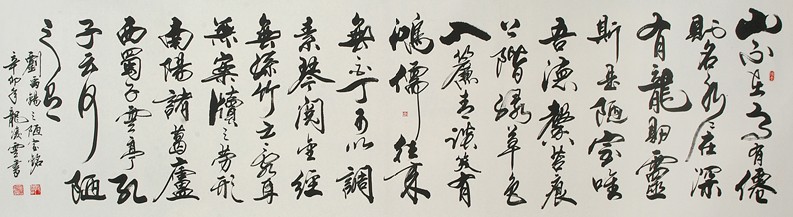 山不在高有僊
則名水不在深
有龍則靈
斯是陋室唯
吾德馨苔痕
上階緑草色
入簾青談笑有
鴻儒往来
無白丁可以調
素琴閲金經
無絲竹之亂耳
無案牘之勞形
南陽諸葛廬
西蜀子雲亭孔
子云何陋
之有
劉禹錫之陋室銘
辛卯年龍雲書